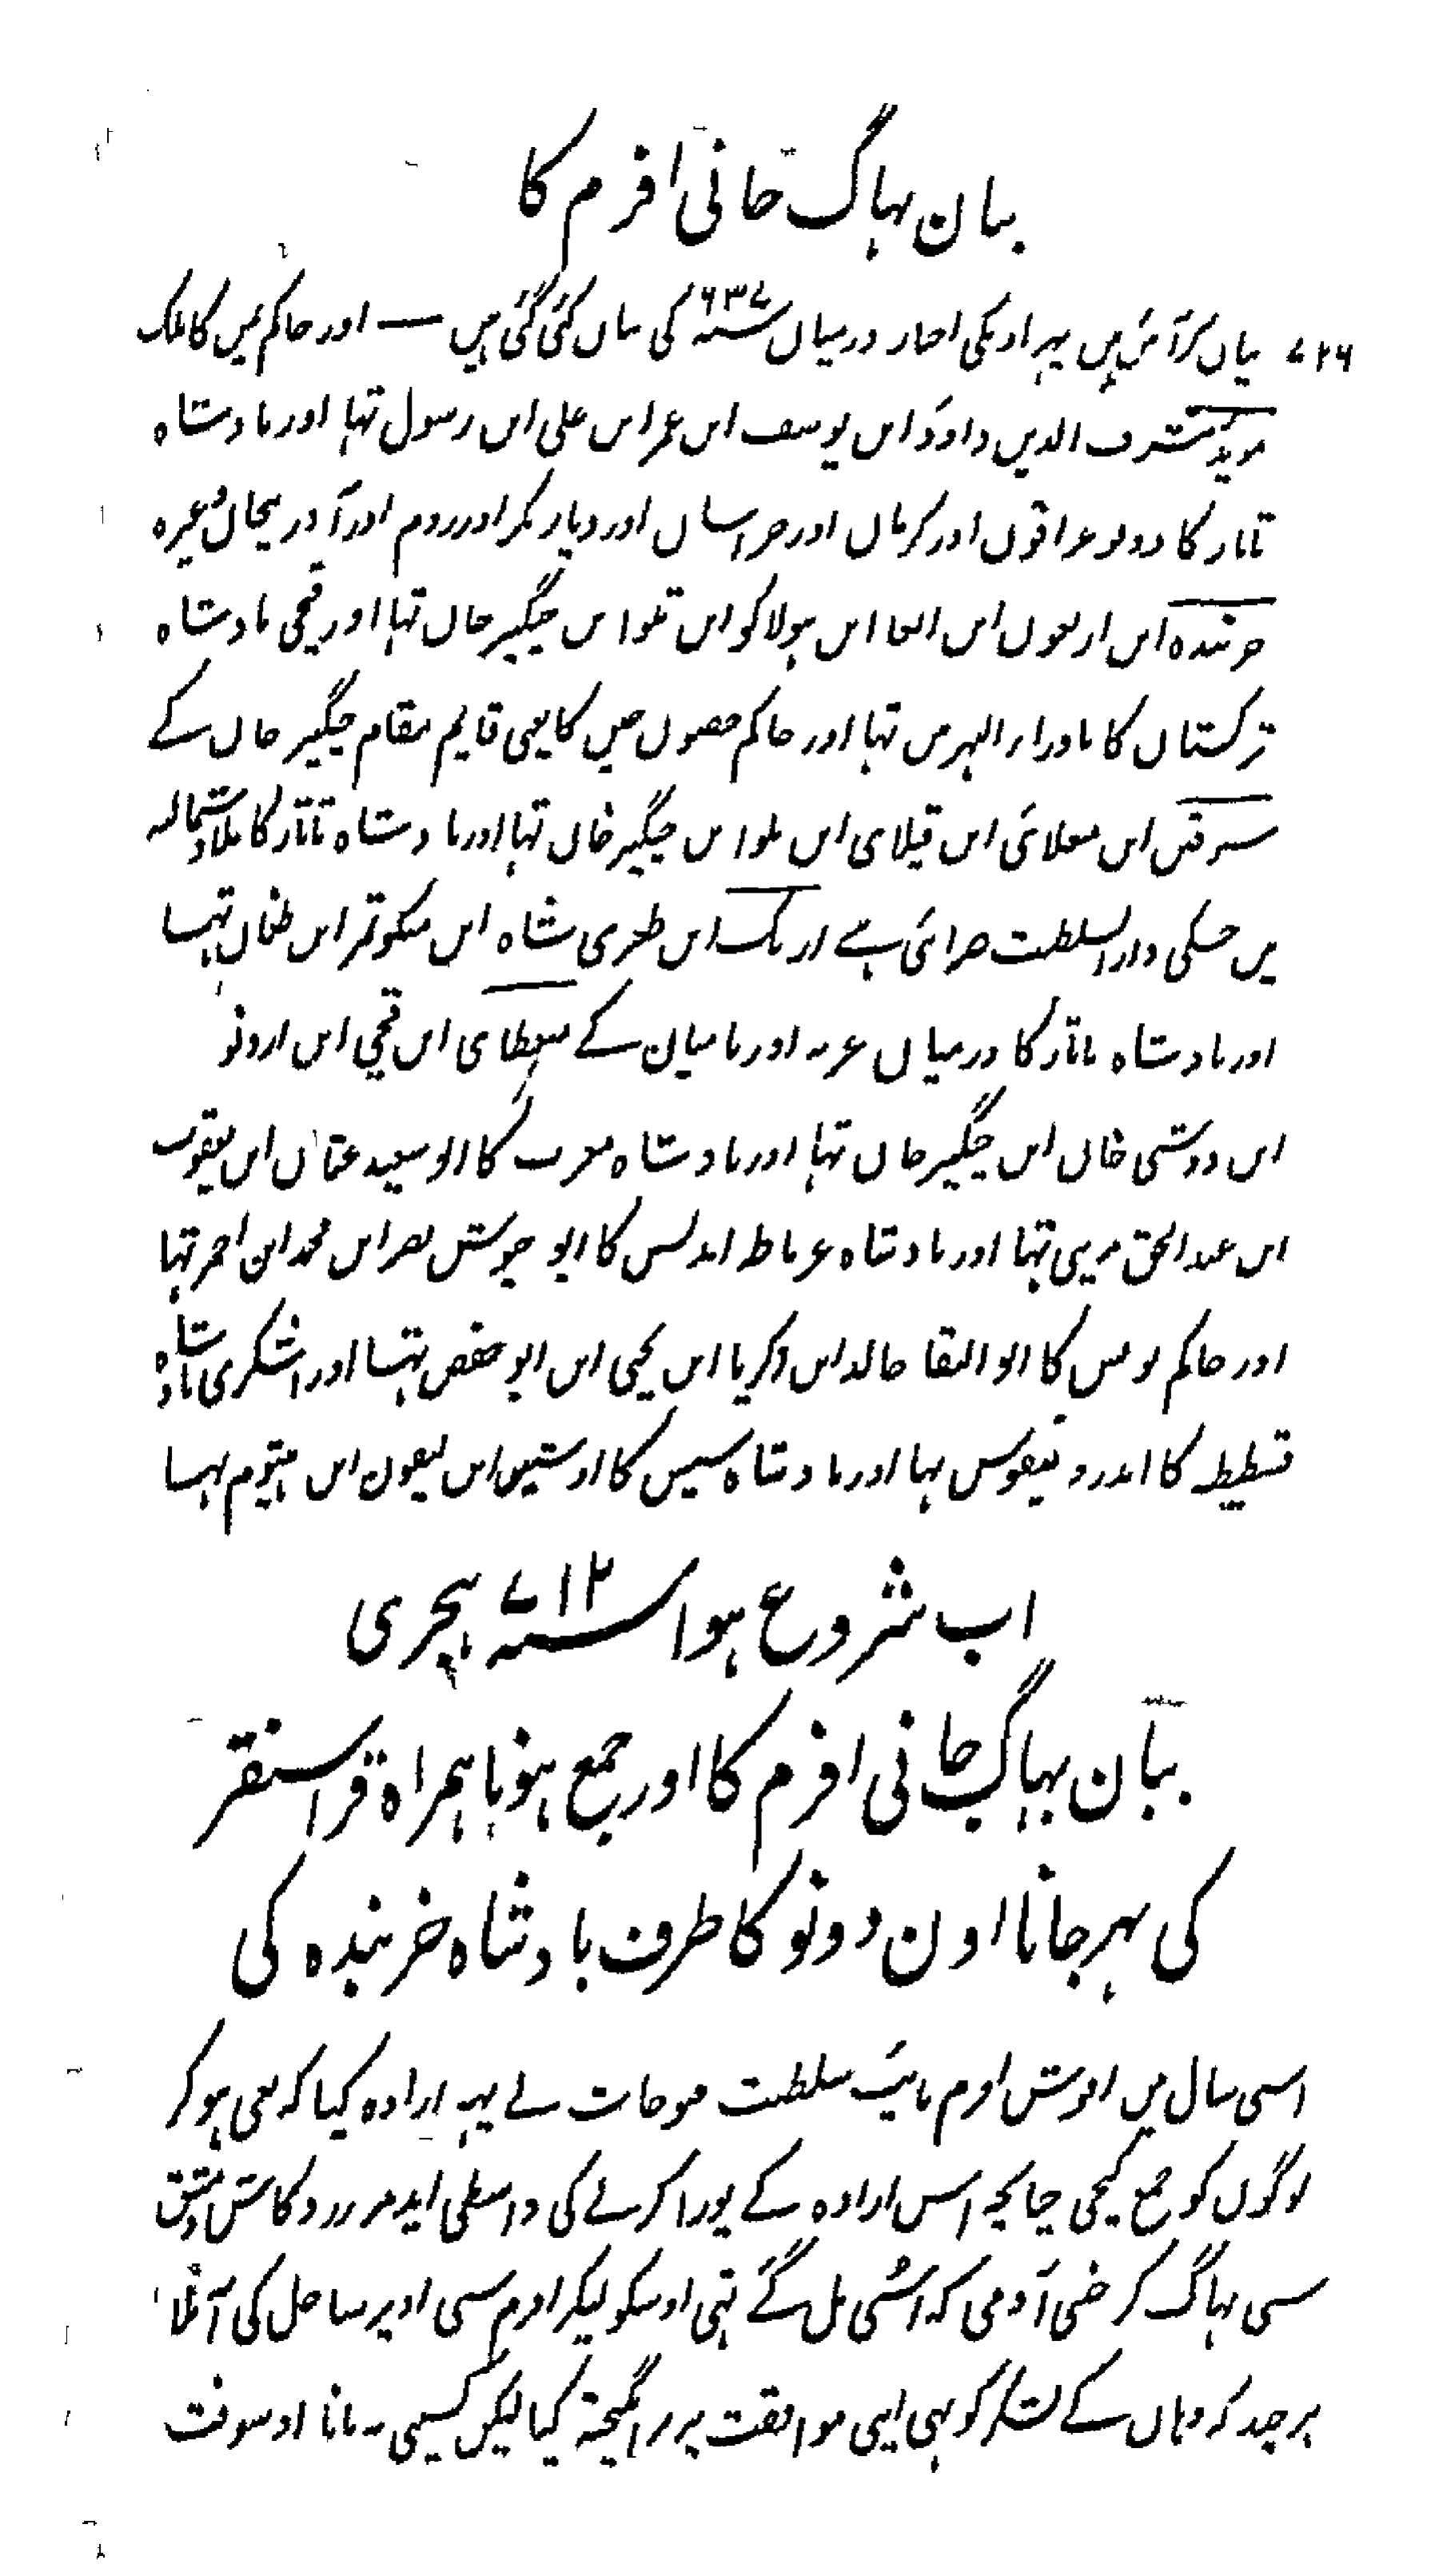 بیان بہاگ جانی افرم کا
۷۲۶ بیان کر آئے ہیں یہہ اونکی اخبار درمیان سنہ ۶۳۷ کی بیان کئی گئی ہیں — اور حاکم یمن کا ملک
موید شرف الدین داود ابن یوسف ابن عمر ابن علی ابن رسول تہا اور بادشاہ
تاتار کا دونو عراقوں اور کرمان اور خراسان اور دیار بکر اور روم اور آذربیجان وغیرہ
خربندہ ابن ارغون ابن ابغا ابن ہولاکو ابن تلو ابن جنگیز خان تہا اور بادشاہ
ترکستان کا ماوراء النہر میں تہا اور حاکم حصون چین کا یعنی قایم مقام جنگیز خان کے
ابن قبلای ابن طلو ابن جنگیز خان تہا اور بادشاہ تاتار کا بلاد شمالیہ
میں جسکی دار السلطنت صرائی ہے ازبک ابن طغری شاہ ابن منکوتمر ابن طغان تہا
اور بادشاہ تاتار کا درمیان غزنہ اور بامیان کے ابن قجی ابن اردنو
ابن دوشی خان ابن جنگیز خان تہا اور بادشاہ مغرب کا ابو سعید عثمان ابن یعقوب
ابن عبد الحق مرینی تہا اور بادشاہ غرناطہ اندلس کا ابو جیوش نصر ابن محمد ابن احمر تہا
اور حاکم تونس کا ابو البقا خالد ابن زکریا ابن یحیی ابن ابو حفص تہا اور اشکری بادشاہ
قسطنطینیہ کا اندرونیقوس تہا اور بادشاہ سیس کا اوشین ابن لیفون ابن ہیثوم تہا
اب شروع ہوا سنہ ۷۱۲ ہجری
بیان بہاگ جانی افرم کا اور جمع ہونا ہمراہ قراسنقر
کی پہر جانا اون دونو کا طرف بادشاہ خربندہ کی
اسی سال میں اقوش افرم نایب سلطنت فتوحات نے یہہ ارادہ کیا کہ باغی ہو کر
لوگوں کو جمع کیجی چنانچہ اس ارادہ کے پورا کرنے کی واسطی ایدمر زردکاش دمشق
سی بہاگ کر جتنی آدمی کہ اسی مل گئے تہی اوسکو لیکر افرم سی اوپر ساحل کی آملا
ہر چند کہ وہاں کے لشکر کو بہی اپنی موافقت پر برانگیختہ کیا لیکن کسیی نہ مانا اوسوقت